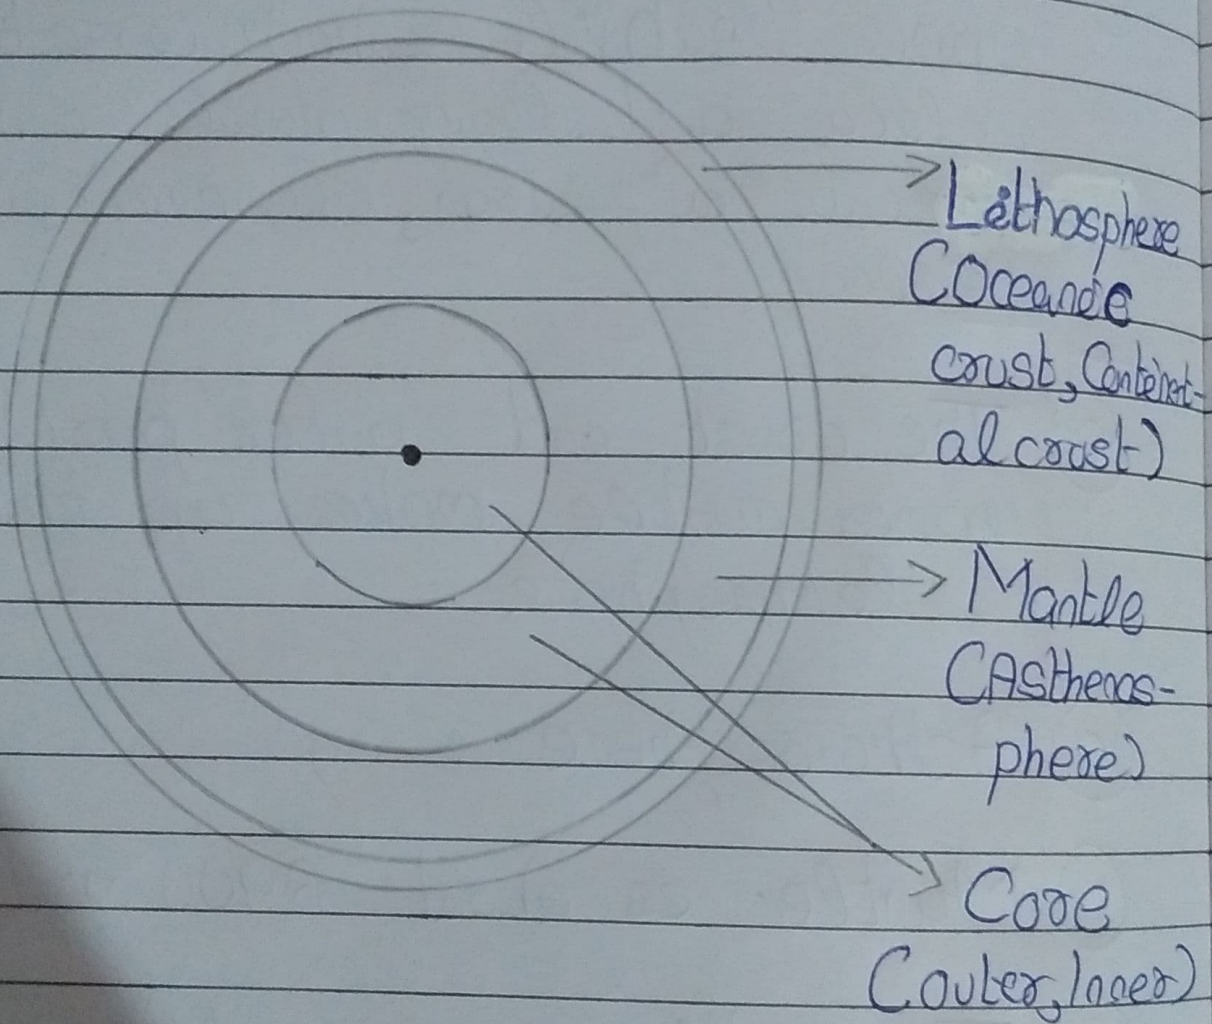 Lithosphere
(Oceanic
crust, Continent-
al crust)
Mantle
(Asthenos-
phere)
Core
(outer, Inner)